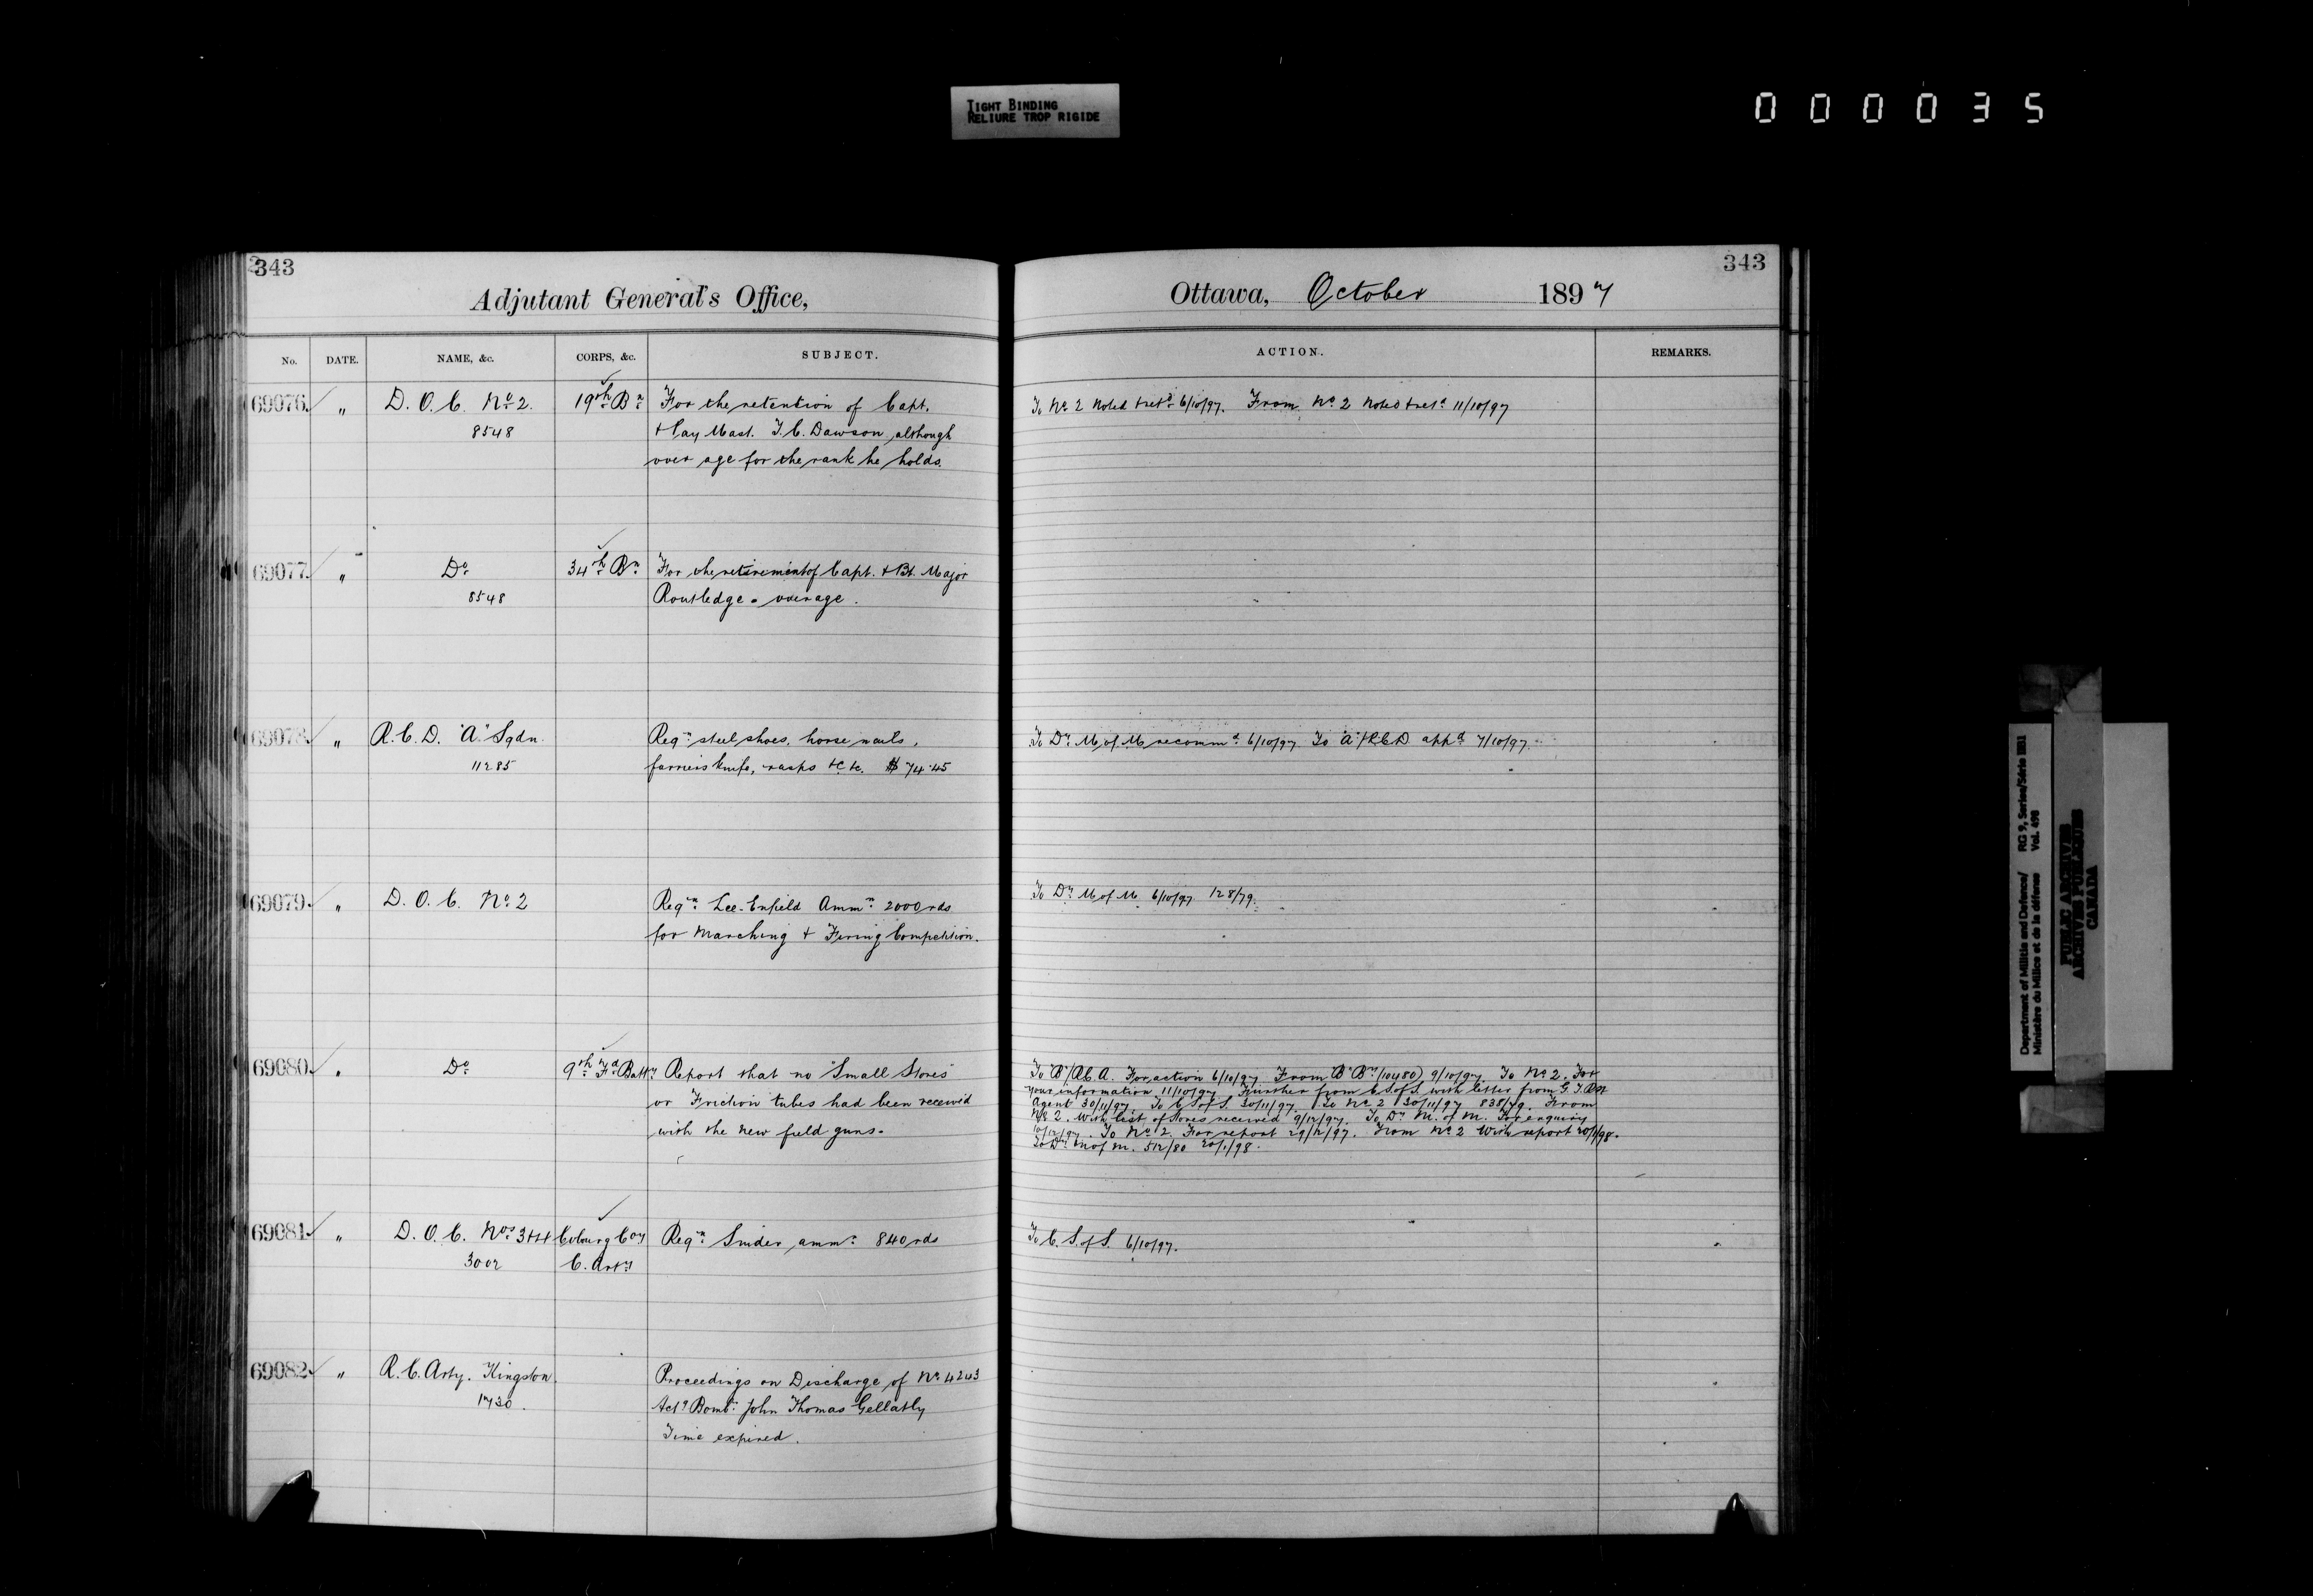 TIGHT BINDING
RELIURE TROP RIGIDE
000035
343
Adjutant General's Office,
No. DATE. NAME, &c. CORPS, &c. SUBJECT.
69076 " D. O. C. No. 2. 19th Bn For the retention of Capt.
8548 + Pay Mast. J. C. Dawson although
over age for the rank he holds.
69077 " Do 34th Bn For the retirement of Capt. + Bt. Major
8548 Routledge - overage.
69078 " R. C. D. "A" Sqdn. Reqn steel shoes, horse nails,
11285 farriers knife, rasps &c &c. $74.45
69079 " D. O. C. No. 2 Reqn Lee-Enfield Ammn 2000 rds
for Marching + Firing Competition.
69080 " Do 9th Fd Batty Report that no "Small Stores"
or Friction tubes had been received
with the new field guns.
69081 " D. O. C. Nos 3+4 Cobourg Coy Reqn Snider ammn 840 rds
3002 G. Arty
69082 " R. C. Arty. Kingston. Proceedings on Discharge of No 4243
1730. Actg Bombr John Thomas Gellatly
Time expired.
343
Ottawa, October 1897
ACTION. REMARKS.
To No 2 Noted + retd 6/10/97. From No 2 Noted + retd 11/10/97
To Dr M. of M. recommd 6/10/97 To "A"/R.C.D. appd 7/10/97
To Dr M. of M. 6/10/97 128/79.
To "B"/R.C.A. For action 6/10/97 From "B" By (10480) 9/10/97 To No 2. For
your information 11/10/97 Further from C. S. of S. with letter from G. T. R.
Agent 30/11/97 To C. S. of S. 30/11/97. To No 2 30/11/97 838/79. From
No 2. With list of Stores received 9/12/97. To Dr M. of M. For enquiry
10/12/97. To No 2. For report 29/12/97. From No 2 With report 20/1/98.
To Dr M of M. 512/80 20/1/98.
To C. S. of S. 6/10/97.
Department of Militia and Defence/ RG 9, Series/Série IIB1
Ministère du Milice et de la défense Vol. 498
PUBLIC ARCHIVES
ARCHIVES PUBLIQUES
CANADA